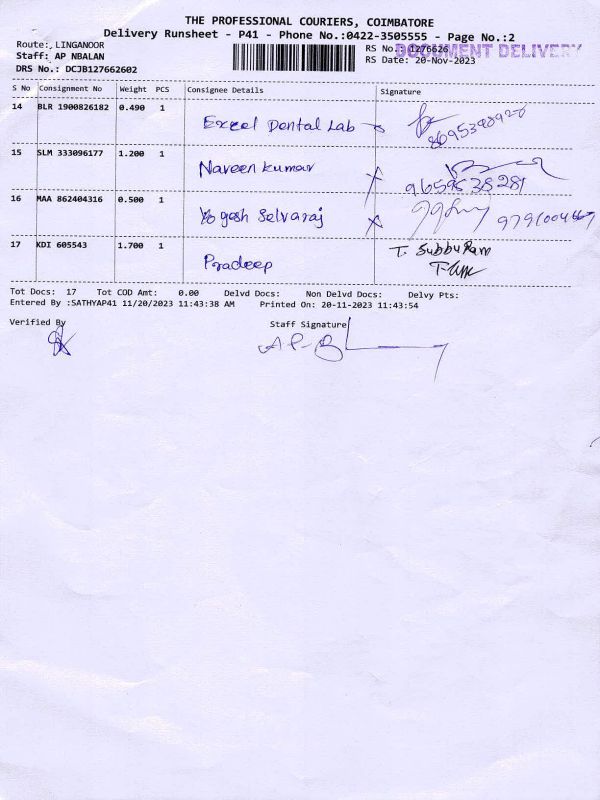 THE PROFESSIONAL COURIERS, COIMBATORE
Delivery Runsheet - P41 - Phone No.:0422-3505555 - Page No.:2
Route: LINGANOOR
RS No. 1276626
DOCUMENT DELIVERY
Staff: AP NBALAN
RS Date: 20-Nov-2023
DRS No.: DCJB127662602
S No Consignment No Weight PCS Consignee Details Signature
14 BLR 1900826182 0.490 1 Excel Dental Lab
15 SLM 333096177 1.200 1 Naveen kumar 9659538281
16 MAA 862404316 0.500 1 Yogash Selvaraj
17 KDI 605543 1.700 1 Pradeep T. Subbu Ram
Tot Docs: 17 Tot COD Amt: 0.00 Delvd Docs: Non Delvd Docs: Delvy Pts:
Entered By :SATHYAP41 11/20/2023 11:43:38 AM Printed On: 20-11-2023 11:43:54
Verified By
Staff Signature